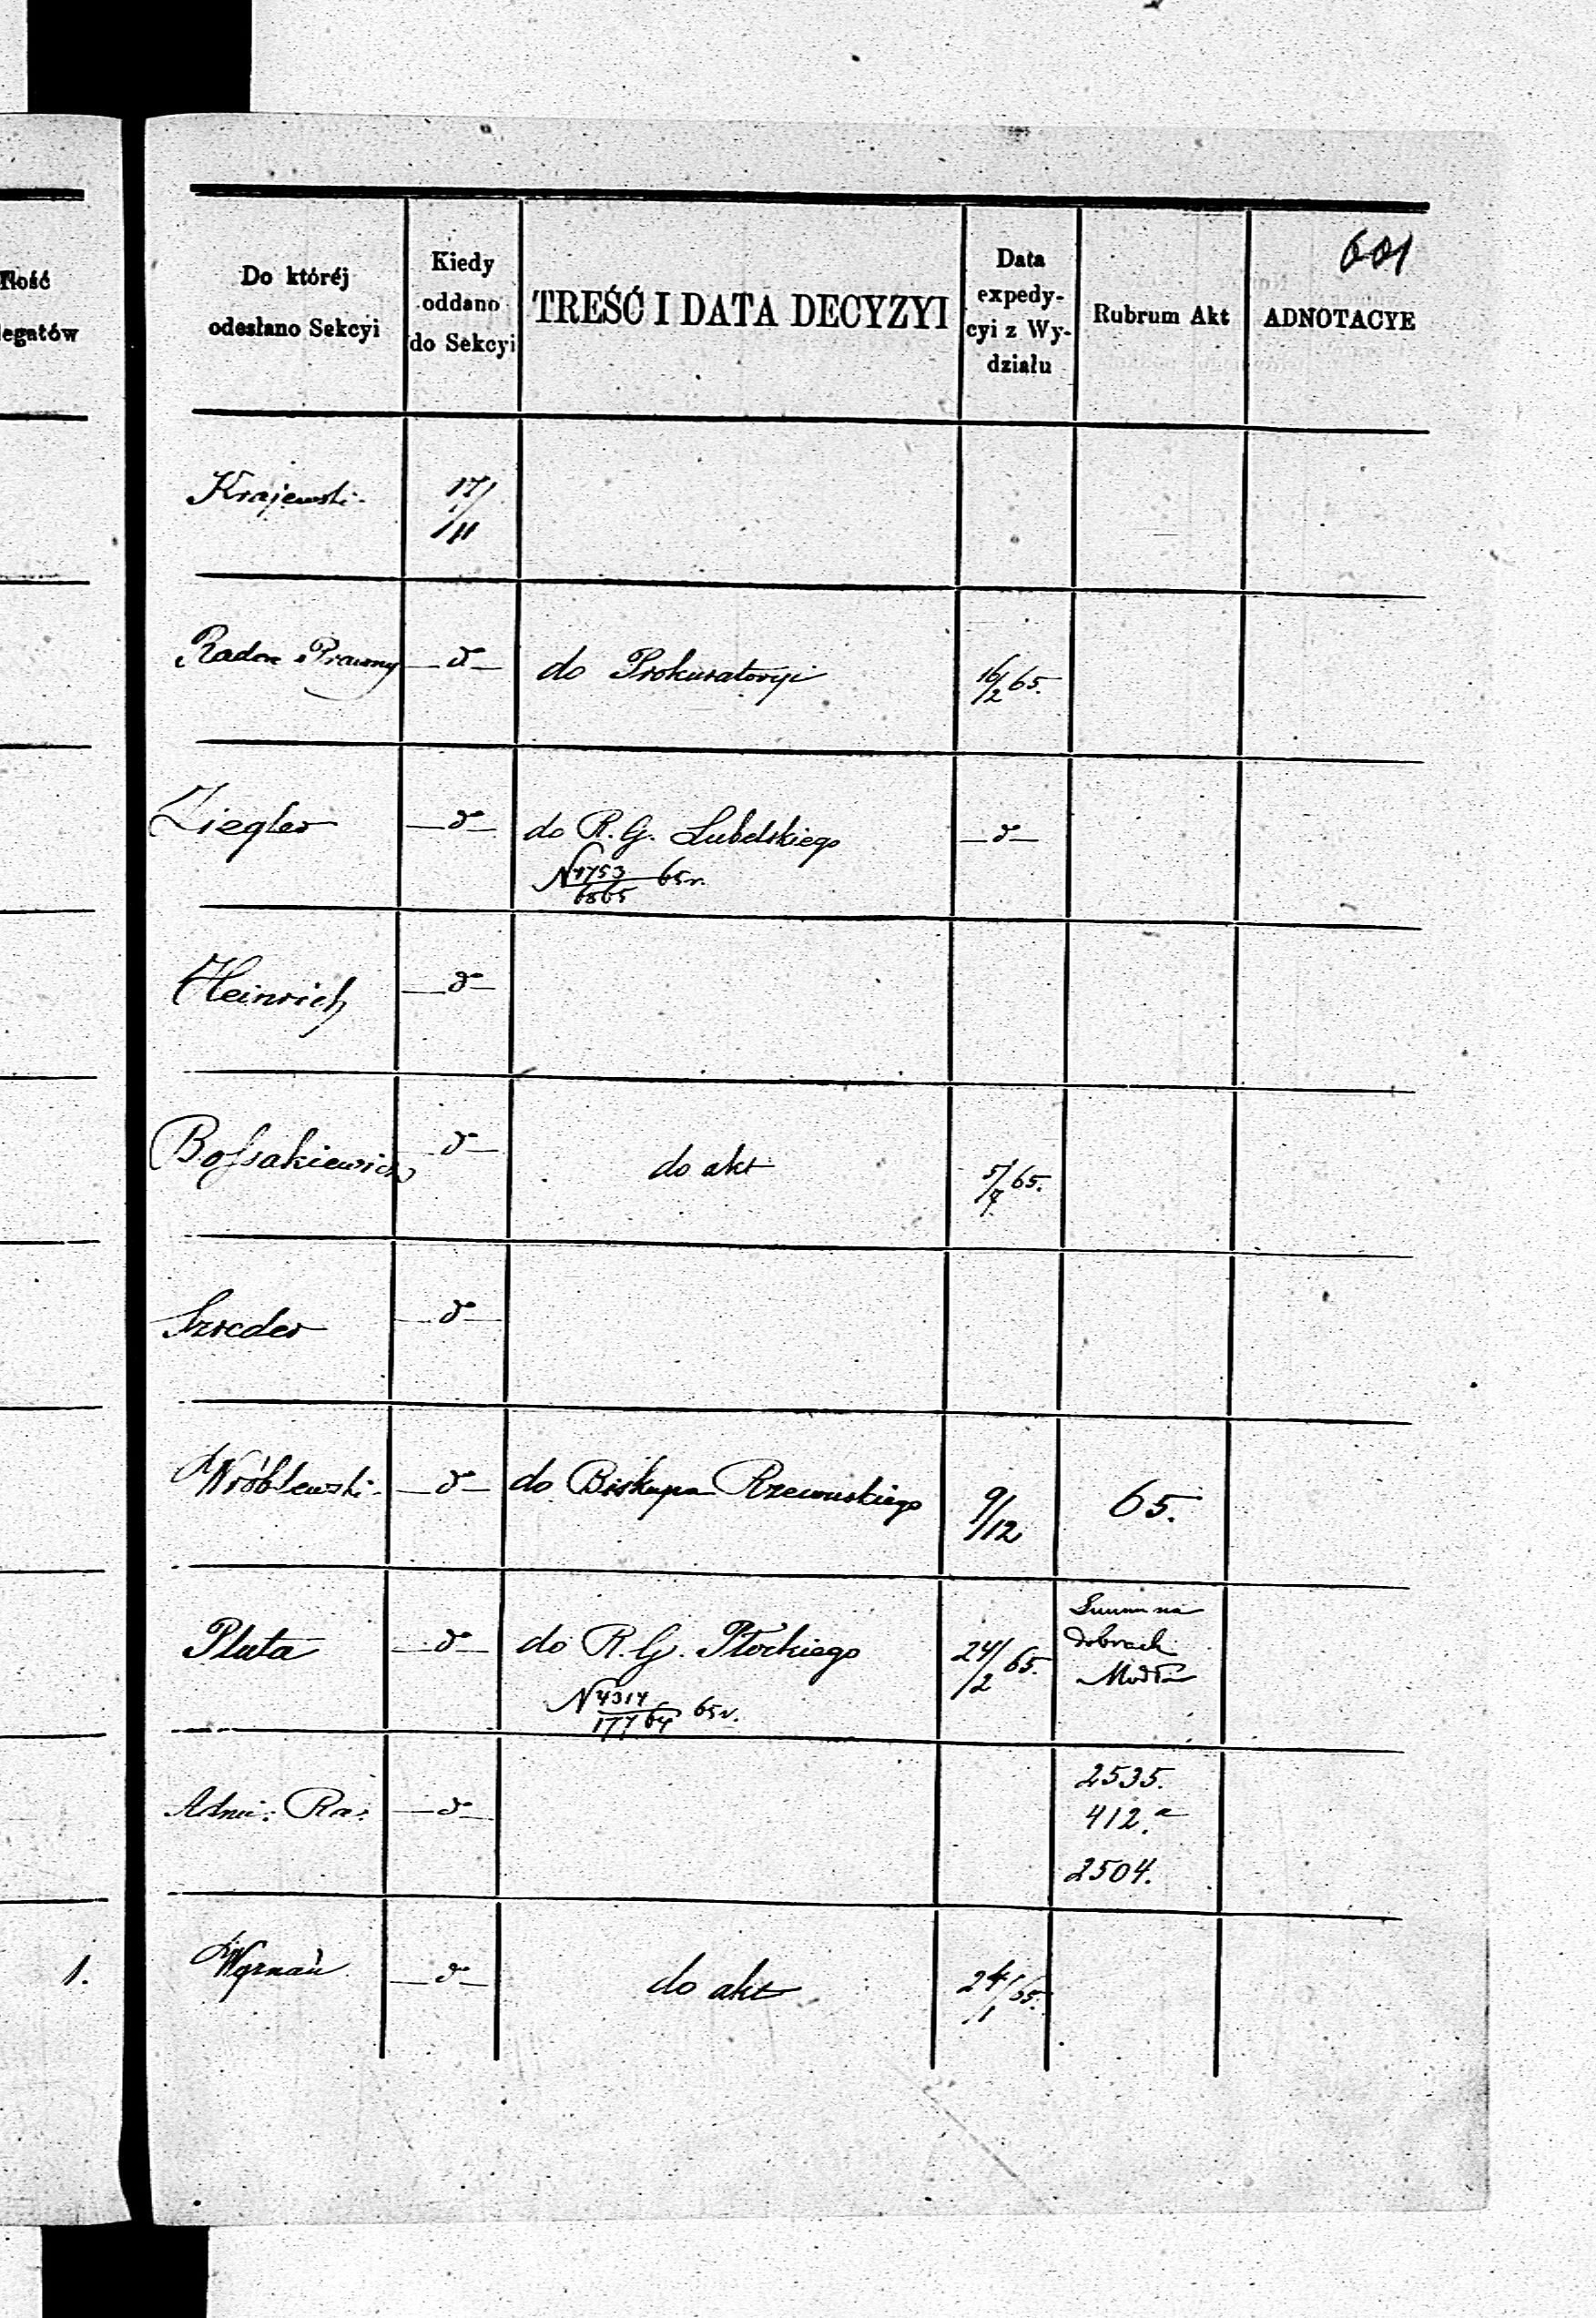 601
Ilość
legatów
Do któréj
odesłano Sekcyi
Kiedy
oddano
do Sekcyi
TREŚĆ I DATA DECYZYI
Data
expedy-
cyi z Wy-
działu
Rubrum Akt
ADNOTACYE
Krajewski 17/11
Radca Prawny —d°— do Prokuratoryi 16/2 65.
Ziegler —d°— do R. G. Lubelskiego —d°—
N 1753/6865 65r.
Heinrich —d°—
Bossakiewicz —d°— do akt 5/7 65.
Szreder —d°—
Wróblewski —d°— do Biskupa Rzewuskiego 9/12 65.
Pluta —d°— do R. G. Płockiego 24/2 65. Summ na
dobrach
N 4314/17764 65r.
Modła
Admi: Ra: —d°— 2535.
412.a
2504.
1. —d°— do akt 24/1 65.